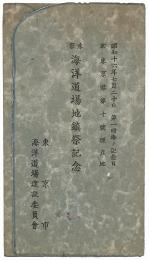 昭和十六年七月二十日 第一回海の記念日
於東京港第十號埋立地
海洋道場地鎮祭記念
東京市
海洋道場建設委員會